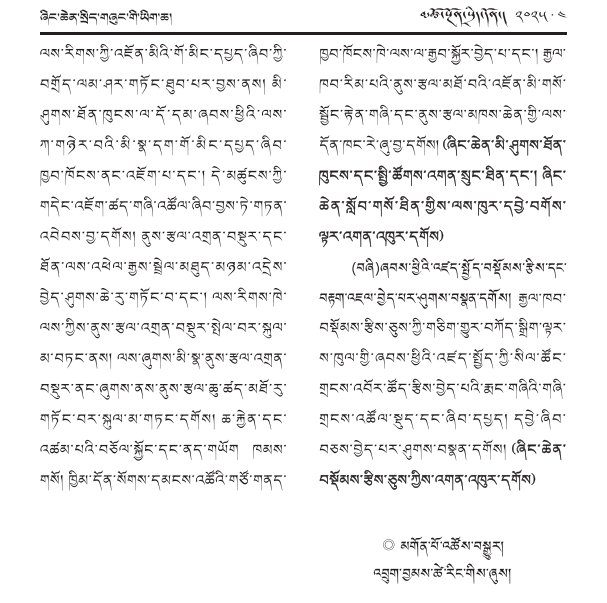 ཞིང་ཆེན་སྲིད་གཞུང་གི་ཡིག་ཆ།
༢༠༢༥ · ༤
ལས་རིགས་ཀྱི་འཛོན་མིའི་གོ་མིང་དཔྱད་ཞིབ་ཀྱི་
བགྲོད་ལམ་ཤར་གཏོང་ཐུབ་པར་བྱས་ནས། མི་
ཤུགས་ཐོན་ཁུངས་ལ་དོ་དམ་ཞབས་ཕྱིའི་ལས་
ཀ་གཉེར་བའི་མི་སྣ་དག་གོ་མིང་དཔྱད་ཞིབ་
ཁྱབ་ཁོངས་ནང་འཇོག་པ་དང་། དེ་མཚུངས་ཀྱི་
གདེང་འཇོག་ཚད་གཞི་འཚོལ་ཞིབ་བྱས་ཏེ་གཏན་
འབེབས་བྱ་དགོས། ནུས་རྩལ་འགྲན་བསྡུར་དང་
ཐོན་ལས་འཕེལ་རྒྱས་སྦྲེལ་མཐུད་མཉམ་འདྲེས་
བྱེད་ཤུགས་ཆེ་རུ་གཏོང་བ་དང་། ལས་རིགས་ཁེ་
ལས་ཀྱིས་ནུས་རྩལ་འགྲན་བསྡུར་སྤེལ་བར་སྐུལ་
མ་བཏང་ནས། ལས་ཞུགས་མི་སྣ་ནུས་རྩལ་འགྲན་
བསྡུར་ནང་ཞུགས་ནས་ནུས་རྩལ་ཆུ་ཚད་མཐོ་རུ་
གཏོང་བར་སྐུལ་མ་གཏང་དགོས། ཆ་རྐྱེན་དང་
འཚམ་པའི་བཅོལ་སྐྱོང་དང་ནད་གཡོག ཁམས་
གསོ། ཁྱིམ་དོན་སོགས་དམངས་འཚོའི་གཙོ་གནད་
ཁྱབ་ཁོངས་ཁེ་ལས་ལ་རྒྱབ་སྐྱོར་བྱེད་པ་དང་། རྒྱལ་
ཁབ་རིམ་པའི་ནུས་རྩལ་མཐོ་བའི་འཛོན་མི་གསོ་
སྦྱོང་རྟེན་གཞི་དང་ནུས་རྩལ་མཁས་ཆེན་གྱི་ལས་
དོན་ཁང་རེ་ཞུ་བྱ་དགོས། (ཞིང་ཆེན་མི་ཤུགས་ཐོན་
ཁུངས་དང་སྤྱི་ཚོགས་འགན་སྲུང་ཐིན་དང་། ཞིང་
ཆེན་སློབ་གསོ་ཐིན་གྱིས་ལས་ཁུར་དབྱེ་བགོས་
ལྟར་འགན་འཁུར་དགོས)
(བཞི)ཞབས་ཕྱིའི་འཛད་སྤྱོད་བསྡོམས་རྩིས་དང་
བརྟག་འཇལ་བྱེད་པར་ཤུགས་བསྣན་དགོས། རྒྱལ་ཁབ་
བསྡོམས་རྩིས་ཅུས་ཀྱི་གཅིག་གྱུར་བཀོད་སྒྲིག་ལྟར་
ས་ཁུལ་གྱི་ཞབས་ཕྱིའི་འཛད་སྤྱོད་ཀྱི་སིལ་ཚོང་
གྲངས་འབོར་ཚོད་རྩིས་བྱེད་པའི་རྨང་གཞིའི་གཞི་
གྲངས་འཚོལ་སྡུད་དང་ཞིབ་དཔྱད། དབྱེ་ཞིབ་
བཅས་བྱེད་པར་ཤུགས་བསྣན་དགོས། (ཞིང་ཆེན་
བསྡོམས་རྩིས་ཅུས་ཀྱིས་འགན་འཁུར་དགོས)
◎ མགོན་པོ་འཚོས་བསྒྱུར།
འབྲུག་བྱམས་ཚེ་རིང་གིས་ཞུས།